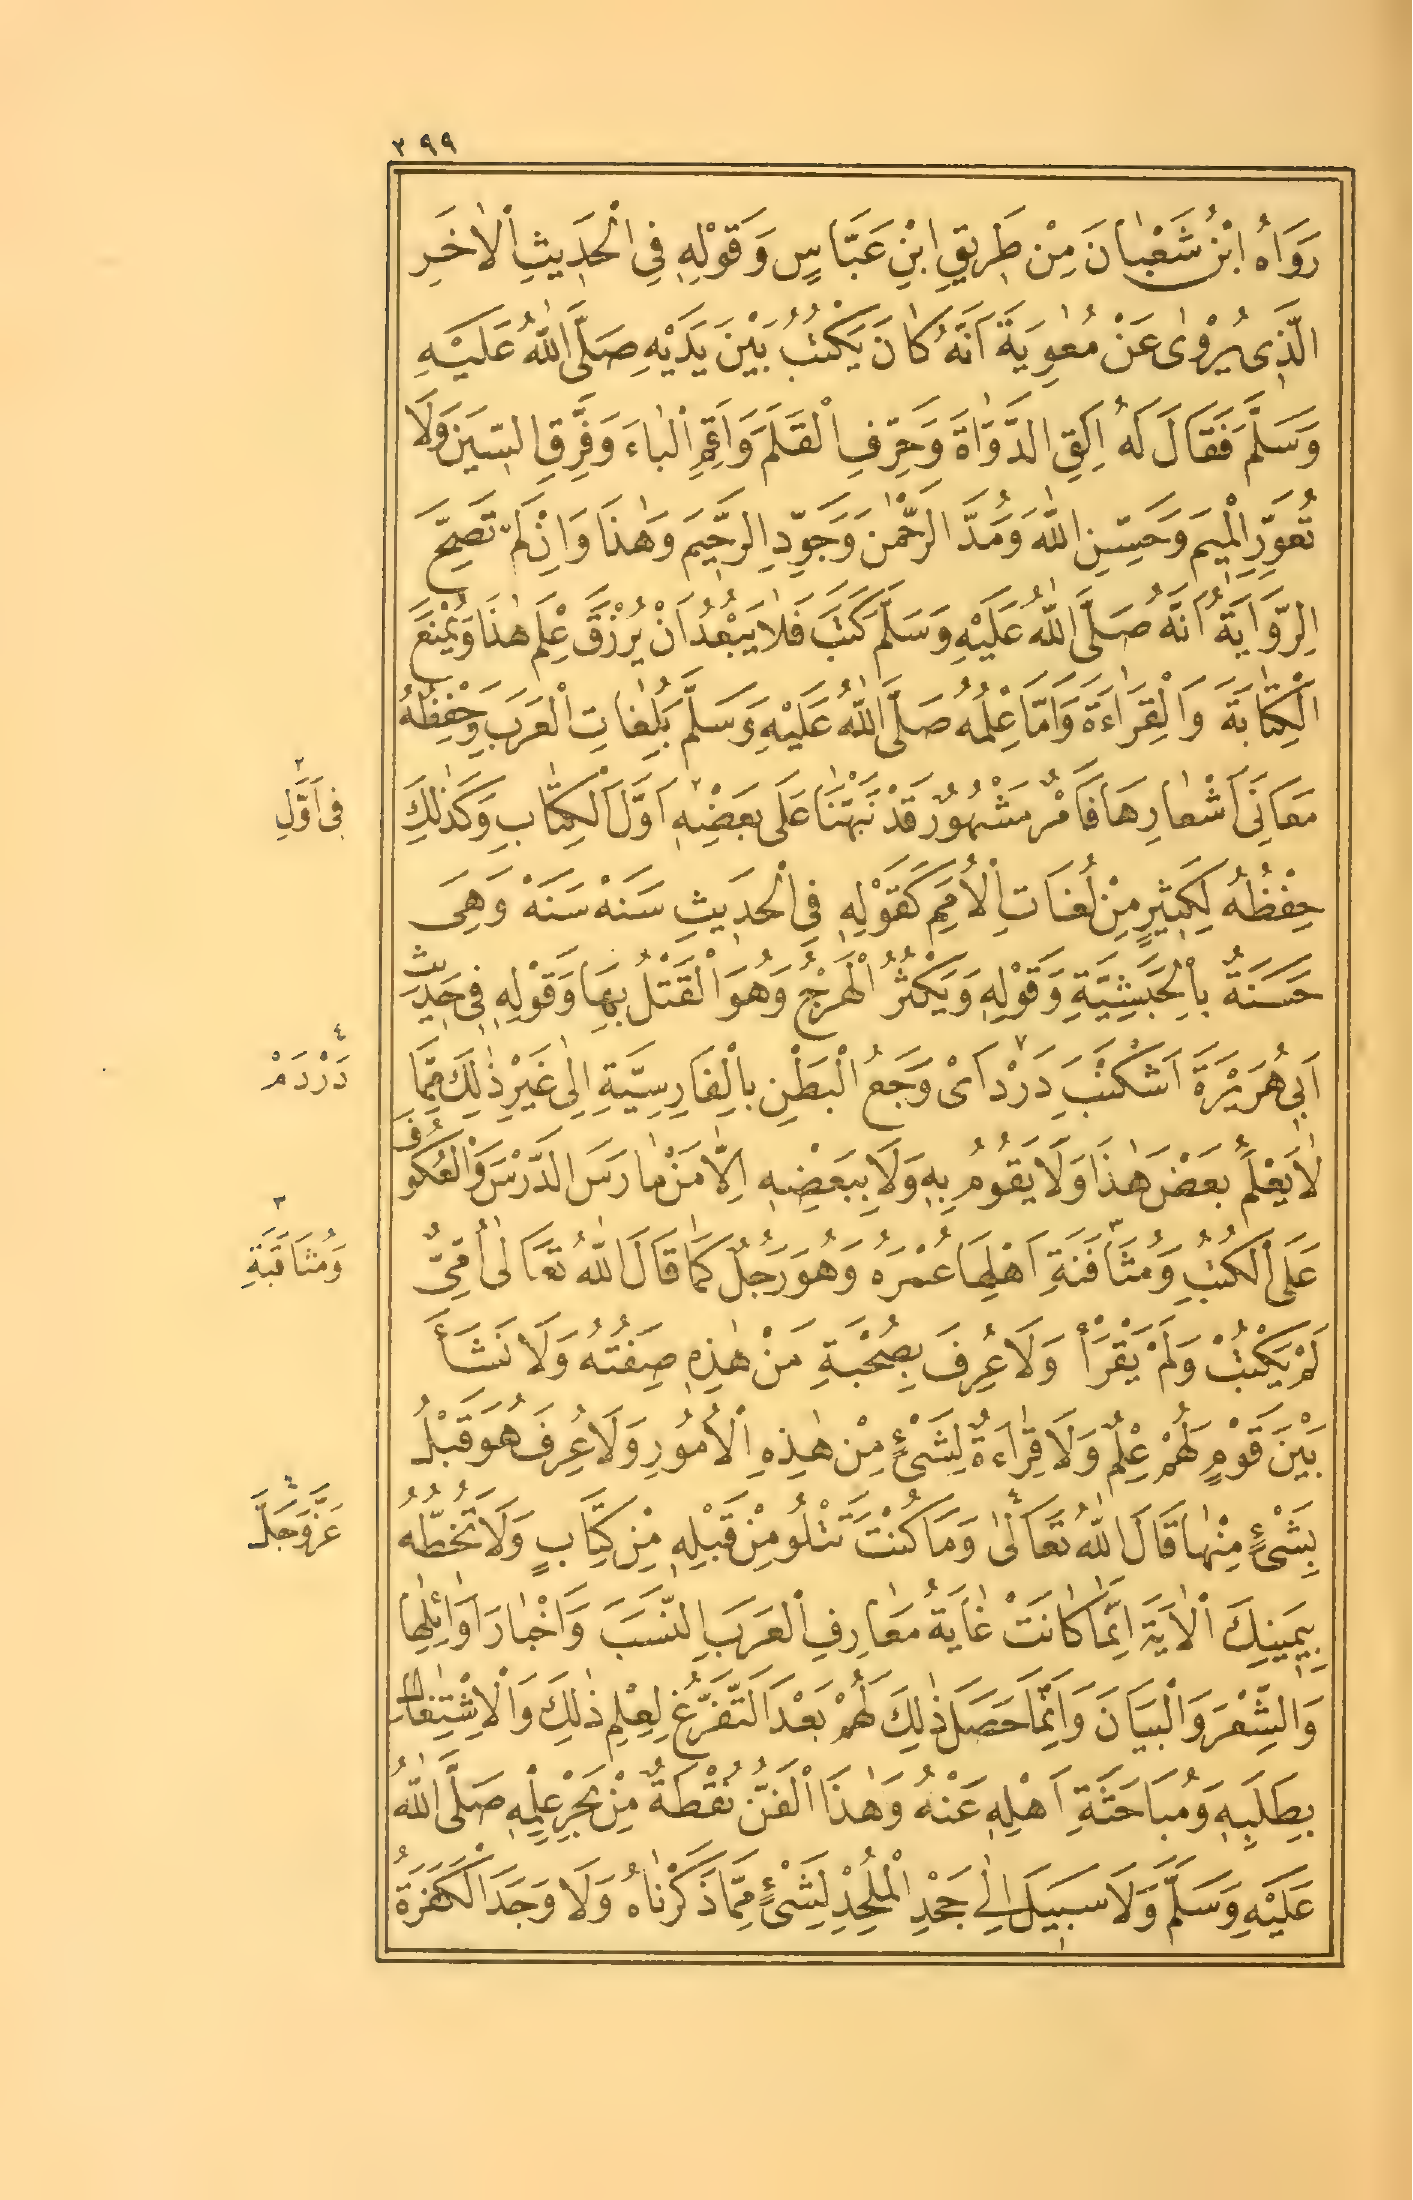 ٢٩٩
رَوَاهُ ابْنُ شَعْبَانَ مِنْ طَرِيقِ ابْنِ عَبَّاسٍ وَقَوْلِهِ فِي الْحَدِيثِ الْاٰخَرِ
الَّذِي يُرْوٰى عَنْ مُعٰوِيَةَ اَنَّهُ كَانَ يَكْتُبُ بَيْنَ يَدَيْهِ صَلَّى اللّٰهُ عَلَيْهِ
وَسَلَّمَ فَقَالَ لَهُ اَلِقِ الدَّوَاةَ وَحَرِّفِ الْقَلَمَ وَاَقِمِ الْبَاءَ وَفَرِّقِ السِّينَ وَلَا
تُعَوِّرِ الْمِيمَ وَحَسِّنِ اللّٰهَ وَمُدَّ الرَّحْمٰنَ وَجَوِّدِ الرَّحِيمَ وَهٰذَا وَاِنْ لَمْ تَصِحَّ
الرِّوَايَةُ اَنَّهُ صَلَّى اللّٰهُ عَلَيْهِ وَسَلَّمَ كَتَبَ فَلَا يَبْعُدُ اَنْ يُرْزَقَ عِلْمَ هٰذَا وَيُمْنَعَ
الْكِتَابَةَ وَالْقِرَاءَةَ وَاَمَّا عِلْمُهُ صَلَّى اللّٰهُ عَلَيْهِ وَسَلَّمَ بِلُغَاتِ الْعَرَبِ وَحِفْظُهُ
مَعَانِيَ اَشْعَارِهَا فَاَمْرٌ مَشْهُورٌ قَدْ نَبَّهْنَا عَلَى بَعْضِهِ ٢ اَوَّلَ الْكِتَابِ وَكَذٰلِكَ
٢ فِي اَوَّلِ
حِفْظُهُ لِكَثِيرٍ مِنْ لُغَاتِ الْاُمَمِ كَقَوْلِهِ فِي الْحَدِيثِ سَنَهْ سَنَهْ وَهِيَ
حَسَنَةٌ بِالْحَبَشِيَّةِ وَقَوْلِهِ وَيَكْثُرُ الْهَرْجُ وَهُوَ الْقَتْلُ بِهَا وَقَوْلِهِ فِي حَدِيثِ
اَبِي هُرَيْرَةَ اَشْكَنْبَ دَرْدْ اَيْ وَجَعُ الْبَطْنِ بِالْفَارِسِيَّةِ اِلٰى غَيْرِ ذٰلِكَ مِمَّا
٤ دَرْدَمْ
لَا يَعْلَمُ بَعْضَ هٰذَا وَلَا يَقُومُ بِهِ وَلَا بِبَعْضِهِ اِلَّا مَنْ مَارَسَ الدَّرْسَ وَالْعُكُوفَ
عَلَى الْكُتُبِ وَمُثَافَنَةِ ٣ اَهْلِهَا عُمْرَهُ وَهُوَ رَجُلٌ كَمَا قَالَ اللّٰهُ تَعَالٰى اُمِّيٌّ
٣ وَمُثَاقَبَةِ
لَمْ يَكْتُبْ وَلَمْ يَقْرَأْ وَلَا عُرِفَ بِصُحْبَةِ مَنْ هٰذِهِ صِفَتُهُ وَلَا نَشَأَ
بَيْنَ قَوْمٍ لَهُمْ عِلْمٌ وَلَا قِرَاءَةٌ لِشَيْءٍ مِنْ هٰذِهِ الْاُمُورِ وَلَا عُرِفَ هُوَ قَبْلُ
بِشَيْءٍ مِنْهَا قَالَ اللّٰهُ تَعَالٰى وَمَا كُنْتَ تَتْلُو مِنْ قَبْلِهِ مِنْ كِتَابٍ وَلَا تَخُطُّهُ
عَزَّ وَجَلَّ
بِيَمِينِكَ الْاٰيَةَ اِنَّمَا كَانَتْ غَايَةُ مَعَارِفِ الْعَرَبِ النَّسَبَ وَاَخْبَارَ اَوَائِلِهَا
وَالشِّعْرَ وَالْبَيَانَ وَاِنَّمَا حَصَلَ ذٰلِكَ لَهُمْ بَعْدَ التَّفَرُّغِ لِعِلْمِ ذٰلِكَ وَالْاِشْتِغَالِ
بِطَلَبِهِ وَمُبَاحَثَةِ اَهْلِهِ عَنْهُ وَهٰذَا الْفَنُّ نُقْطَةٌ مِنْ بَحْرِ عِلْمِهِ صَلَّى اللّٰهُ
عَلَيْهِ وَسَلَّمَ وَلَا سَبِيلَ اِلٰى جَحْدِ الْمُلْحِدِ لِشَيْءٍ مِمَّا ذَكَرْنَاهُ وَلَا وَجَدَ الْكَفَرَةُ